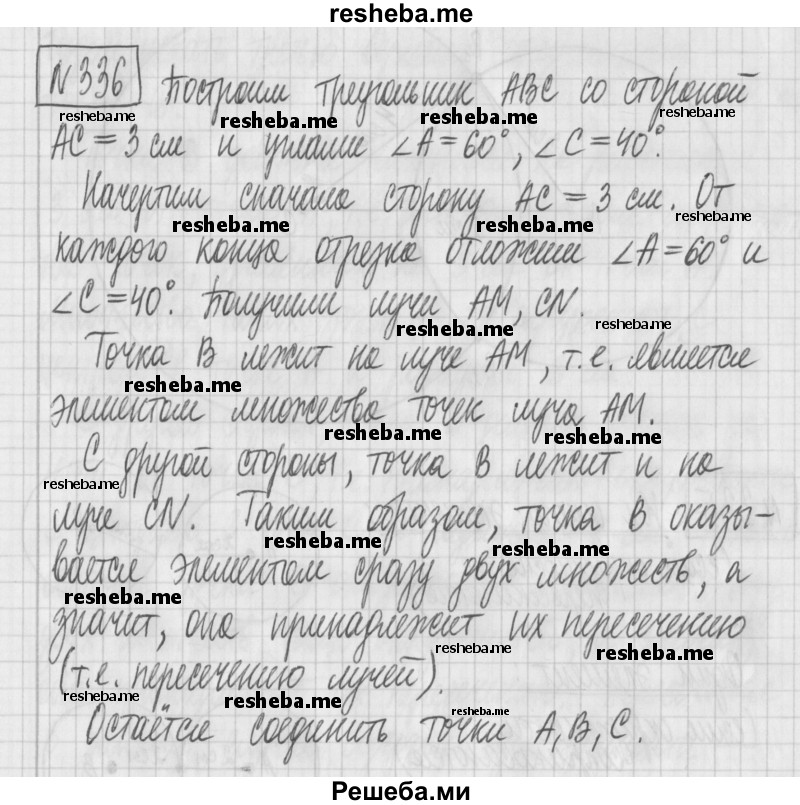 resheba.me
N 336 Построим треугольник ABC со стороной
resheba.me resheba.me resheba.me
AC = 3 см и углами ∠A = 60°, ∠C = 40°.
Начертим сначала сторону AC = 3 см. От
resheba.me resheba.me resheba.me
каждого конца отрезка отложим ∠A = 60° и
∠C = 40°. Получили лучи AM, CN.
resheba.me resheba.me
Точка B лежит на луче AM, т.е. является
resheba.me
элементом множества точек луча AM.
resheba.me resheba.me
С другой стороны, точка B лежит и на
resheba.me
луче CN. Таким образом, точка B оказы-
resheba.me resheba.me
вается элементом сразу двух множеств, а
resheba.me
значит, она принадлежит их пересечению
resheba.me resheba.me
(т.е. пересечению лучей).
resheba.me resheba.me resheba.me
Остаётся соединить точки A, B, C.
Решеба.ми